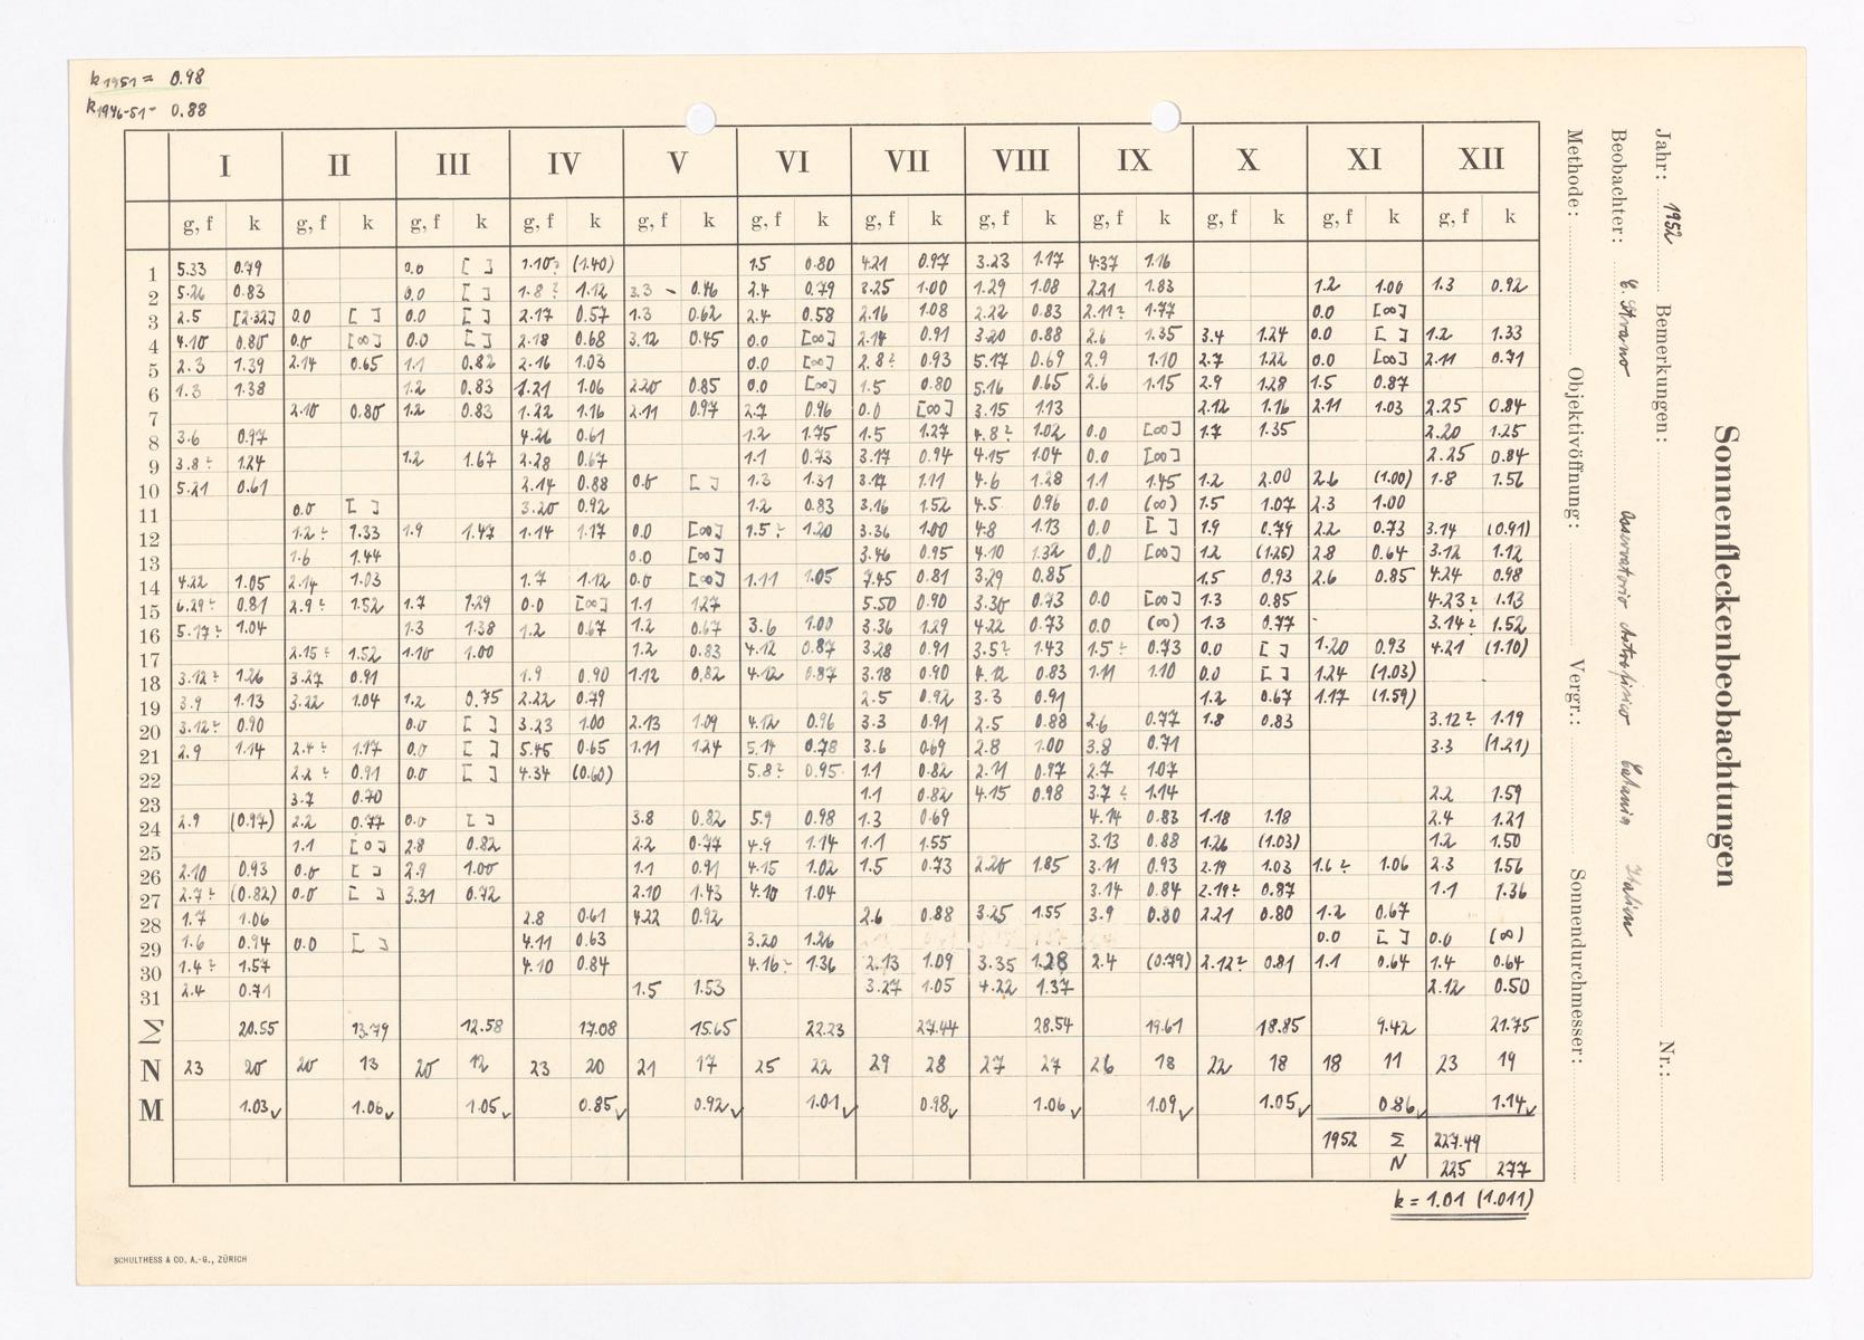 k1951 = 0.98
k1946-51 = 0.88
I II III IV V VI VII VIII IX X XI XII
g, f k g, f k g, f k g, f k g, f k g, f k g, f k g, f k g, f k g, f k g, f k g, f k
1 5.33 0.79 0.0 [ ] 1.10? (1.40) 1.5 0.80 4.21 0.97 3.23 1.17 4.37 1.16
2 5.26 0.83 0.0 [ ] 1.8? 1.12 3.3 – 0.46 2.4 0.79 3.25 1.00 1.29 1.08 2.21 1.83 1.2 1.00 1.3 0.92
3 2.5 [2.32] 0.0 [ ] 0.0 [ ] 2.17 0.57 1.3 0.62 2.4 0.58 2.16 1.08 2.22 0.83 2.11? 1.77 0.0 [∞]
4 4.10 0.80 0.0 [∞] 0.0 [ ] 2.18 0.68 3.12 0.45 0.0 [∞] 2.14 0.91 3.20 0.88 2.6 1.35 3.4 1.24 0.0 [ ] 1.2 1.33
5 2.3 1.39 2.14 0.65 1.1 0.82 2.16 1.03 0.0 [∞] 2.8? 0.93 5.17 0.69 2.9 1.10 2.7 1.22 0.0 [∞] 2.11 0.71
6 1.3 1.38 1.2 0.83 1.21 1.06 2.20 0.85 0.0 [∞] 1.5 0.80 5.16 0.65 2.6 1.15 2.9 1.28 1.5 0.87
7 2.10 0.80 1.2 0.83 1.22 1.16 2.11 0.97 2.7 0.96 0.0 [∞] 3.15 1.13 2.12 1.16 2.11 1.03 2.25 0.84
8 3.6 0.97 4.26 0.61 1.2 1.75 1.5 1.27 4.8? 1.02 0.0 [∞] 1.7 1.35 2.20 1.25
9 3.8? 1.24 1.2 1.67 2.28 0.67 1.1 0.73 3.17 0.94 4.15 1.04 0.0 [∞] 2.25 0.84
10 5.21 0.61 2.14 0.88 0.0 [ ] 1.3 1.31 3.17 1.11 4.6 1.28 1.1 1.45 1.2 2.00 2.6 (1.00) 1.8 1.56
11 0.0 [ ] 3.20 0.92 1.2 0.83 3.16 1.52 4.5 0.96 0.0 (∞) 1.5 1.07 2.3 1.00
12 1.2? 1.33 1.9 1.47 1.14 1.17 0.0 [∞] 1.5? 1.20 3.36 1.00 4.8 1.13 0.0 [ ] 1.9 0.79 2.2 0.73 3.14 (0.91)
13 1.6 1.44 0.0 [∞] 3.46 0.95 4.10 1.32 0.0 [∞] 1.2 (1.25) 2.8 0.64 3.12 1.12
14 4.22 1.05 2.14 1.03 1.7 1.12 0.0 [∞] 1.11 1.05 7.45 0.81 3.29 0.85 1.5 0.93 2.6 0.85 4.24 0.98
15 6.29? 0.81 2.9? 1.52 1.7 1.29 0.0 [∞] 1.1 1.27 5.50 0.90 3.30 0.73 0.0 [∞] 1.3 0.85 4.23? 1.13
16 5.17? 1.04 1.3 1.38 1.2 0.67 1.2 0.67 3.6 1.00 3.36 1.29 4.22 0.73 0.0 (∞) 1.3 0.77 - 3.14? 1.52
17 2.15? 1.52 1.10 1.00 1.2 0.83 4.12 0.87 3.28 0.91 3.5? 1.43 1.5? 0.73 0.0 [ ] 1.20 0.93 4.21 (1.10)
18 3.12? 1.26 3.27 0.91 1.9 0.90 1.12 0.82 4.12 0.87 3.18 0.90 4.12 0.83 1.11 1.10 0.0 [ ] 1.24 (1.03)
19 3.9 1.13 3.22 1.04 1.2 0.75 2.22 0.79 2.5 0.92 3.3 0.91 1.2 0.67 1.17 (1.59)
20 3.12? 0.90 0.0 [ ] 3.23 1.00 2.13 1.09 4.12 0.96 3.3 0.91 2.5 0.88 2.6 0.77 1.8 0.83 3.12? 1.19
21 2.9 1.14 2.4? 1.17 0.0 [ ] 5.45 0.65 1.11 1.24 5.14 0.78 3.6 0.69 2.8 1.00 3.8 0.71 3.3 (1.21)
22 2.2? 0.91 0.0 [ ] 4.34 (0.60) 5.8? 0.95 1.1 0.82 2.11 0.97 2.7 1.07
23 3.7 0.70 1.1 0.82 4.15 0.98 3.7? 1.14 2.2 1.59
24 2.9 (0.97) 2.2 0.77 0.0 [ ] 3.8 0.82 5.9 0.98 1.3 0.69 4.14 0.83 1.18 1.18 2.4 1.21
25 1.1 [0] 2.8 0.82 2.2 0.77 4.9 1.14 1.1 1.55 3.13 0.88 1.26 (1.03) 1.2 1.50
26 2.10 0.93 0.0 [ ] 2.9 1.00 1.1 0.91 4.15 1.02 1.5 0.73 2.20 1.85 3.11 0.93 2.19 1.03 1.6? 1.06 2.3 1.56
27 2.7? (0.82) 0.0 [ ] 3.31 0.72 2.10 1.43 4.10 1.04 3.14 0.84 2.19? 0.87 1.1 1.36
28 1.7 1.06 2.8 0.61 4.22 0.92 2.6 0.88 3.25 1.55 3.9 0.80 2.21 0.80 1.2 0.67
29 1.6 0.94 0.0 [ ] 4.11 0.63 3.20 1.26 0.0 [ ] 0.0 (∞)
30 1.4? 1.57 4.10 0.84 4.16? 1.36 2.13 1.09 3.35 1.28 2.4 (0.79) 2.12? 0.81 1.1 0.64 1.4 0.64
31 2.4 0.71 1.5 1.53 3.27 1.05 4.22 1.37 2.12 0.50
Σ 20.55 13.79 12.58 17.08 15.65 22.23 27.44 28.54 19.61 18.85 9.42 21.75
N 23 20 20 13 20 12 23 20 21 17 25 22 29 28 27 27 26 18 22 18 18 11 23 19
M 1.03✓ 1.06✓ 1.05✓ 0.85✓ 0.92✓ 1.01✓ 0.98✓ 1.06✓ 1.09✓ 1.05✓ 0.86✓ 1.14✓
1952 Σ 227.49
N 225 277
k = 1.01 (1.011)
SCHULTHESS & CO. A.-G., ZÜRICH
Sonnenfleckenbeobachtungen
Jahr: 1952 Bemerkungen: Nr.:
Beobachter: C. Strano Osservatorio Astrofisico Catania Italien
Methode: Objektivöffnung: Vergr.: Sonnendurchmesser: